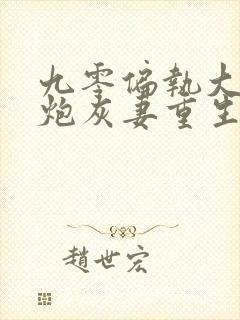 九零偏執大
炮灰妻重生
趙世宏